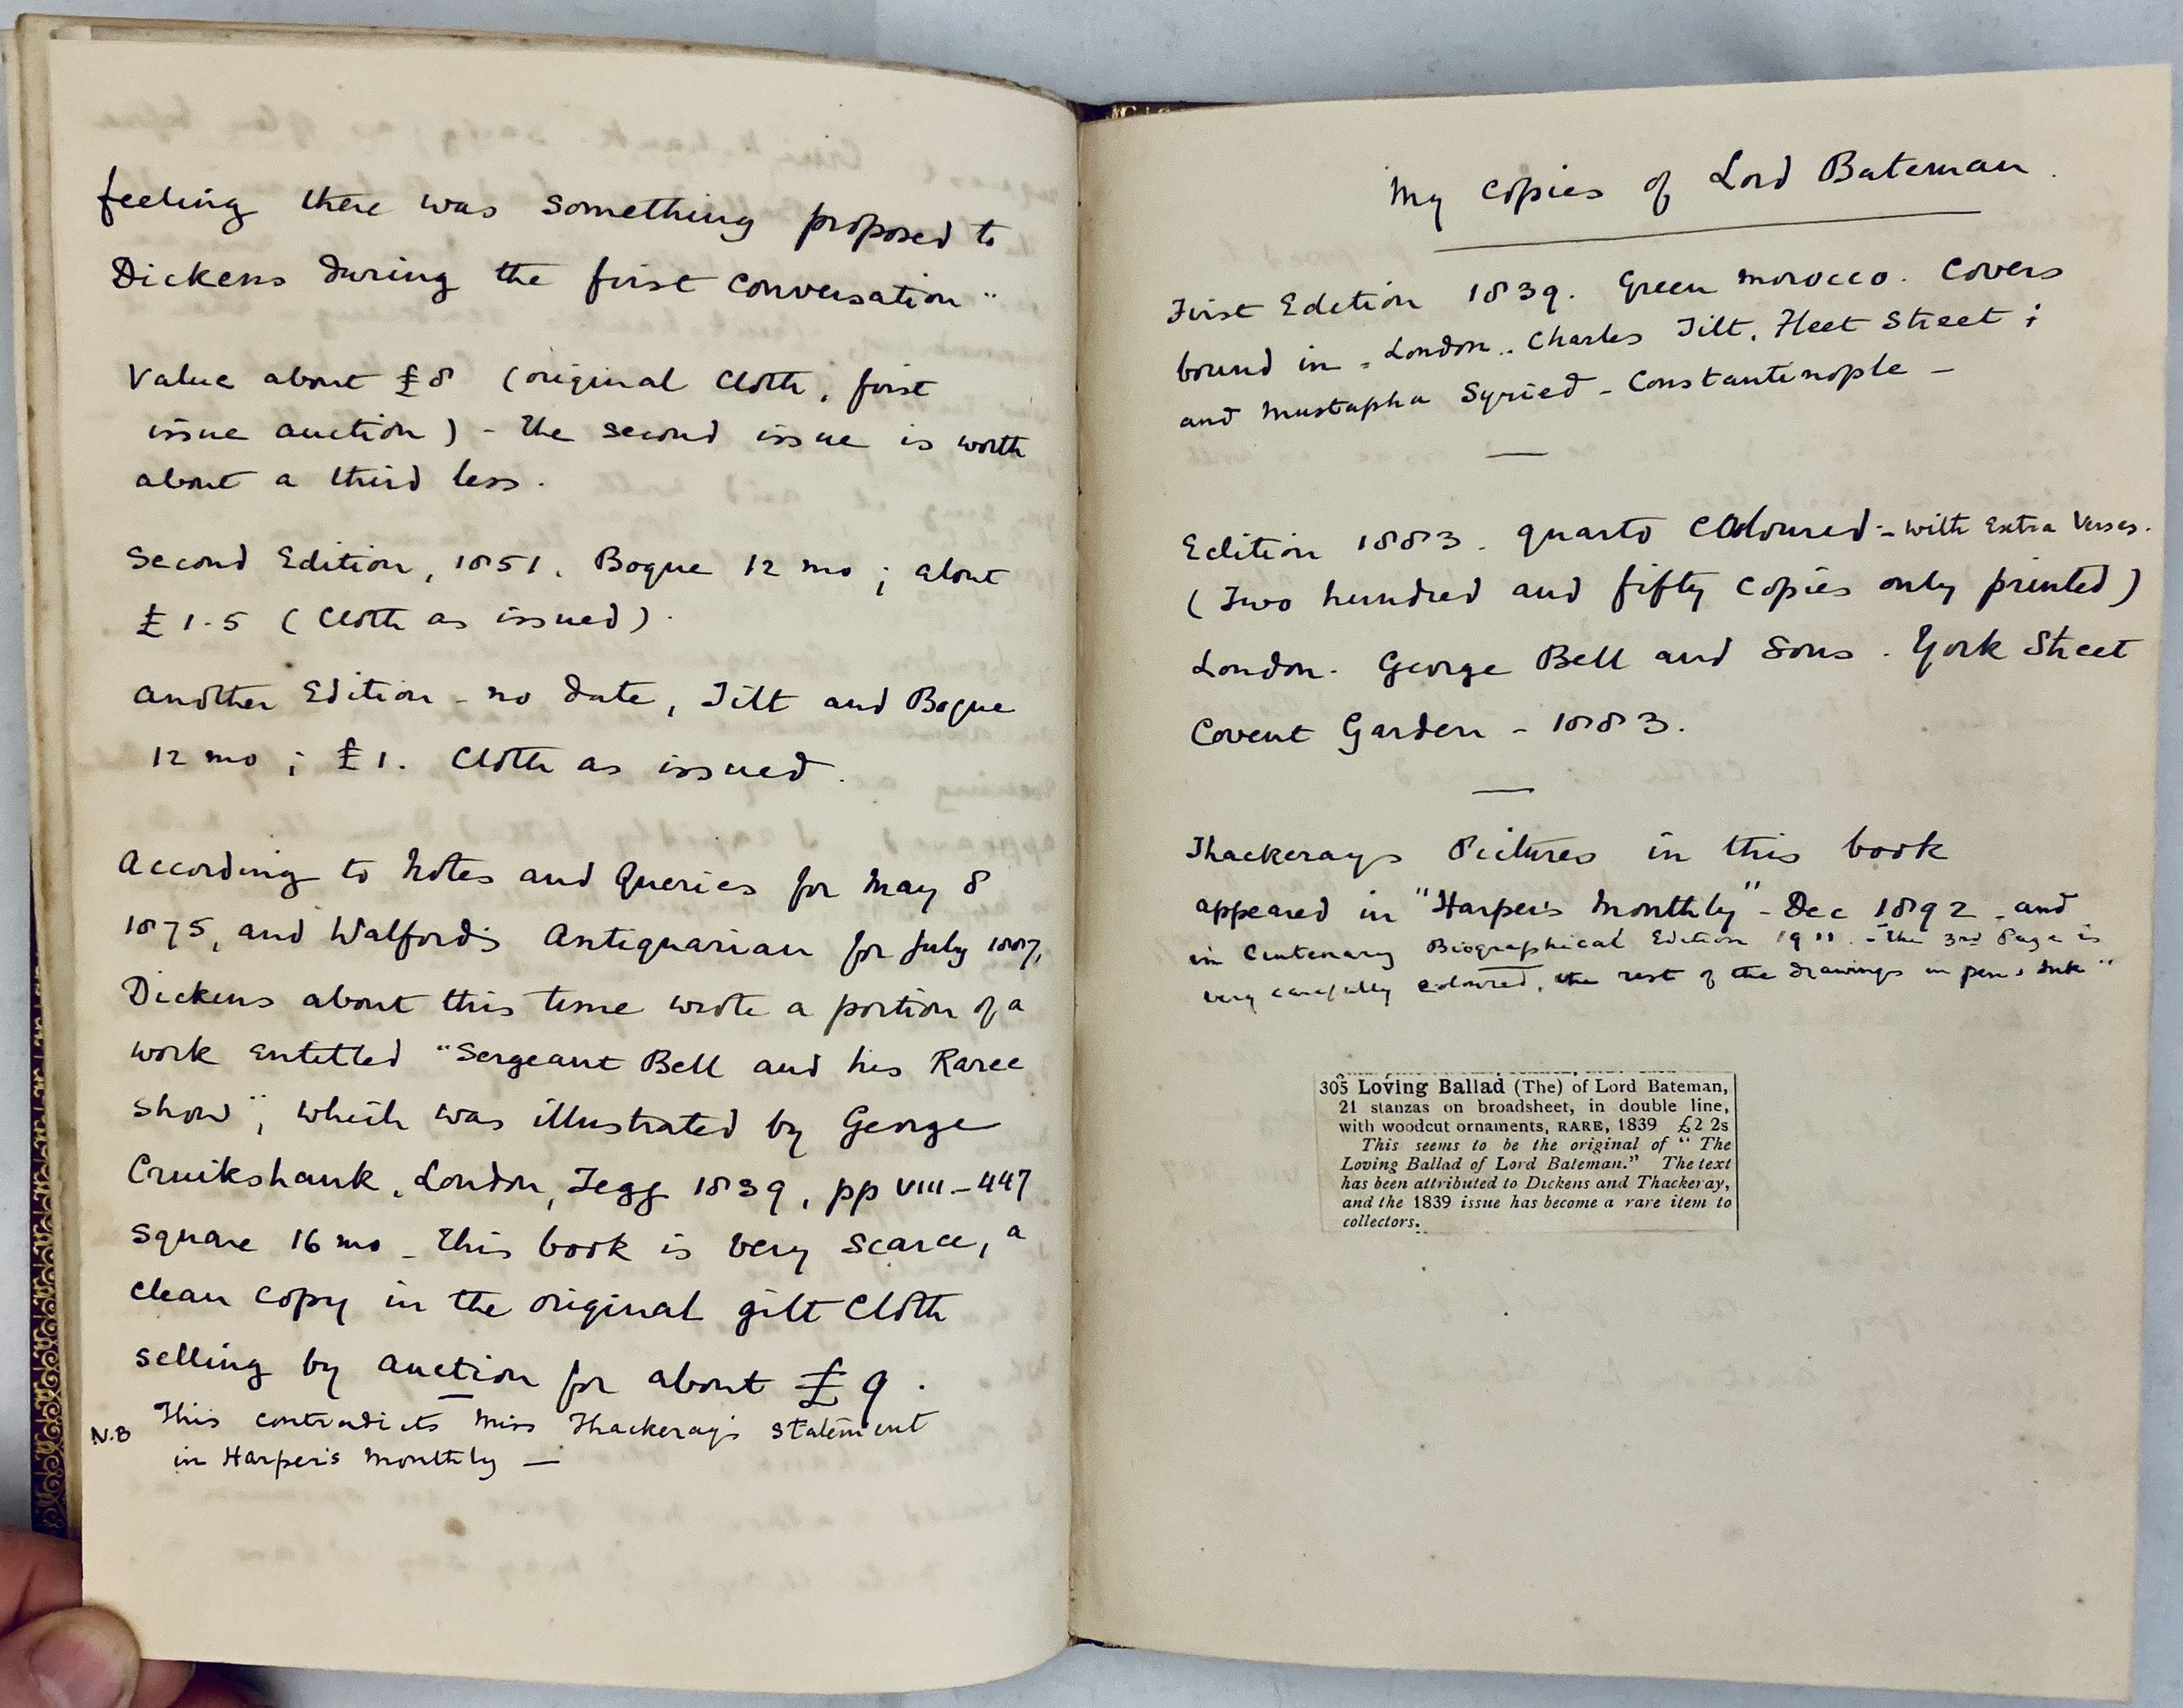 feeling there was something proposed to
Dickens during the first conversation"
Value about £8 (original cloth, first
issue auction) - the second issue is worth
about a third less.
Second Edition, 1851. Bogue 12 mo; about
£1.5 (cloth as issued).
Another Edition - no date, Tilt and Bogue
12 mo; £1. Cloth as issued.
According to Notes and Queries for May 8
1875, and Walford's Antiquarian for July 1887,
Dickens about this time wrote a portion of a
work entitled "Sergeant Bell and his Raree
Show", which was illustrated by George
Cruikshank. London, Tegg 1839, pp VIII - 447
square 16 mo - this book is very scarce, a
clean copy in the original gilt cloth
selling by auction for about £9.
N.B This contradicts Miss Thackeray's statement
in Harper's Monthly —
My Copies of Lord Bateman.
First Edition 1839. Green morocco. Covers
bound in - London.. Charles Tilt. Fleet Street;
and Mustapha Syried - Constantinople -
Edition 1883. quarto Coloured - with Extra Verses.
(Two hundred and fifty copies only printed)
London. George Bell and Sons. York Street
Covent Garden - 1883.
Thackerays Pictures in this book
appeared in "Harper's Monthly" - Dec 1892 - and
in Centenary Biographical Edition 1911. - "The 3rd Page is
very carefully coloured, the rest of the drawings in pen & ink"
305 Loving Ballad (The) of Lord Bateman,
21 stanzas on broadsheet, in double line,
with woodcut ornaments, RARE, 1839 £2 2s
This seems to be the original of "The
Loving Ballad of Lord Bateman." The text
has been attributed to Dickens and Thackeray,
and the 1839 issue has become a rare item to
collectors.